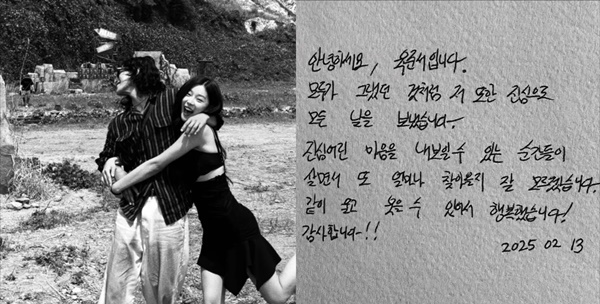 안녕하세요, 육준서입니다.
모두가 그랬던 것처럼 저 또한 진심으로
모든 날을 보냈습니다.
진심어린 마음을 내보일 수 있는 순간들이
살면서 또 얼마나 찾아올지 잘 모르겠습니다.
같이 울고 웃을 수 있어서 행복했습니다!
감사합니다!!
2025 02 13